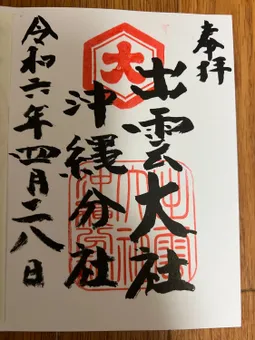 奉拝
大
出雲大社
沖縄分社
令和六年四月二八日